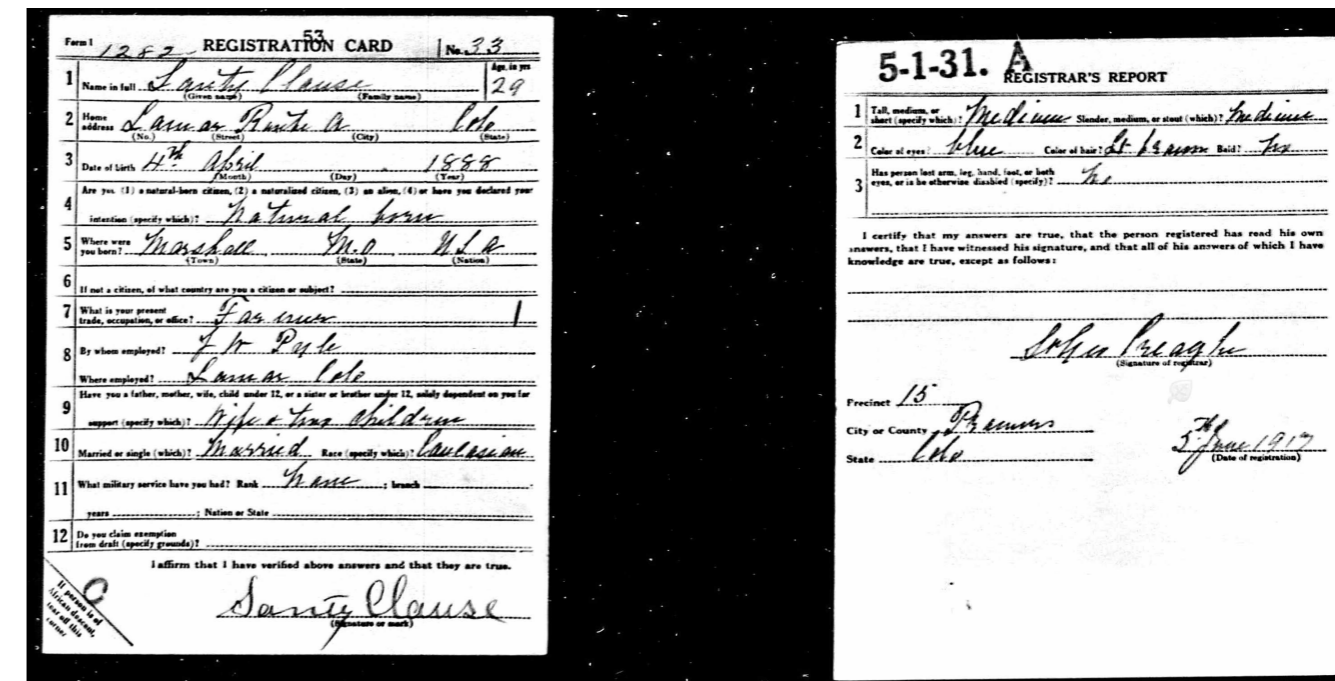 53
Form 1 1282 REGISTRATION CARD No. 33
1 Name in full Santy Clause Age, in yrs 29
(Given name) (Family name)
2 Home address Lamar Route A Colo
(No.) (Street) (City) (State)
3 Date of birth 4th April 1888
(Month) (Day) (Year)
4 Are you (1) a natural-born citizen, (2) a naturalized citizen, (3) an alien, (4) or have you declared your
intention (specify which)? Natural born
5 Where were you born? Marshall M.O U S A
(Town) (State) (Nation)
6 If not a citizen, of what country are you a citizen or subject?
7 What is your present trade, occupation, or office? Farmer 1
8 By whom employed? J W Pyle
Where employed? Lamar Colo
9 Have you a father, mother, wife, child under 12, or a sister or brother under 12, solely dependent on you for
support (specify which)? Wife & two children
10 Married or single (which)? Married Race (specify which)? Caucasian
11 What military service have you had? Rank None ; branch
years ; Nation or State
12 Do you claim exemption
from draft (specify grounds)?
I affirm that I have verified above answers and that they are true.
Santy Clause
(Signature or mark)
If person is of
African descent,
tear off this
corner
5-1-31. A REGISTRAR'S REPORT
1 Tall, medium, or
short (specify which)? Medium Slender, medium, or stout (which)? Medium
2 Color of eyes? blue Color of hair? Lt brown Bald? No
3 Has person lost arm, leg, hand, foot, or both
eyes, or is he otherwise disabled (specify)? No
I certify that my answers are true, that the person registered has read his own
answers, that I have witnessed his signature, and that all of his answers of which I have
knowledge are true, except as follows:
(Signature of registrar)
Precinct 15
City or County Prowers
State Colo
5th June 1917
(Date of registration)